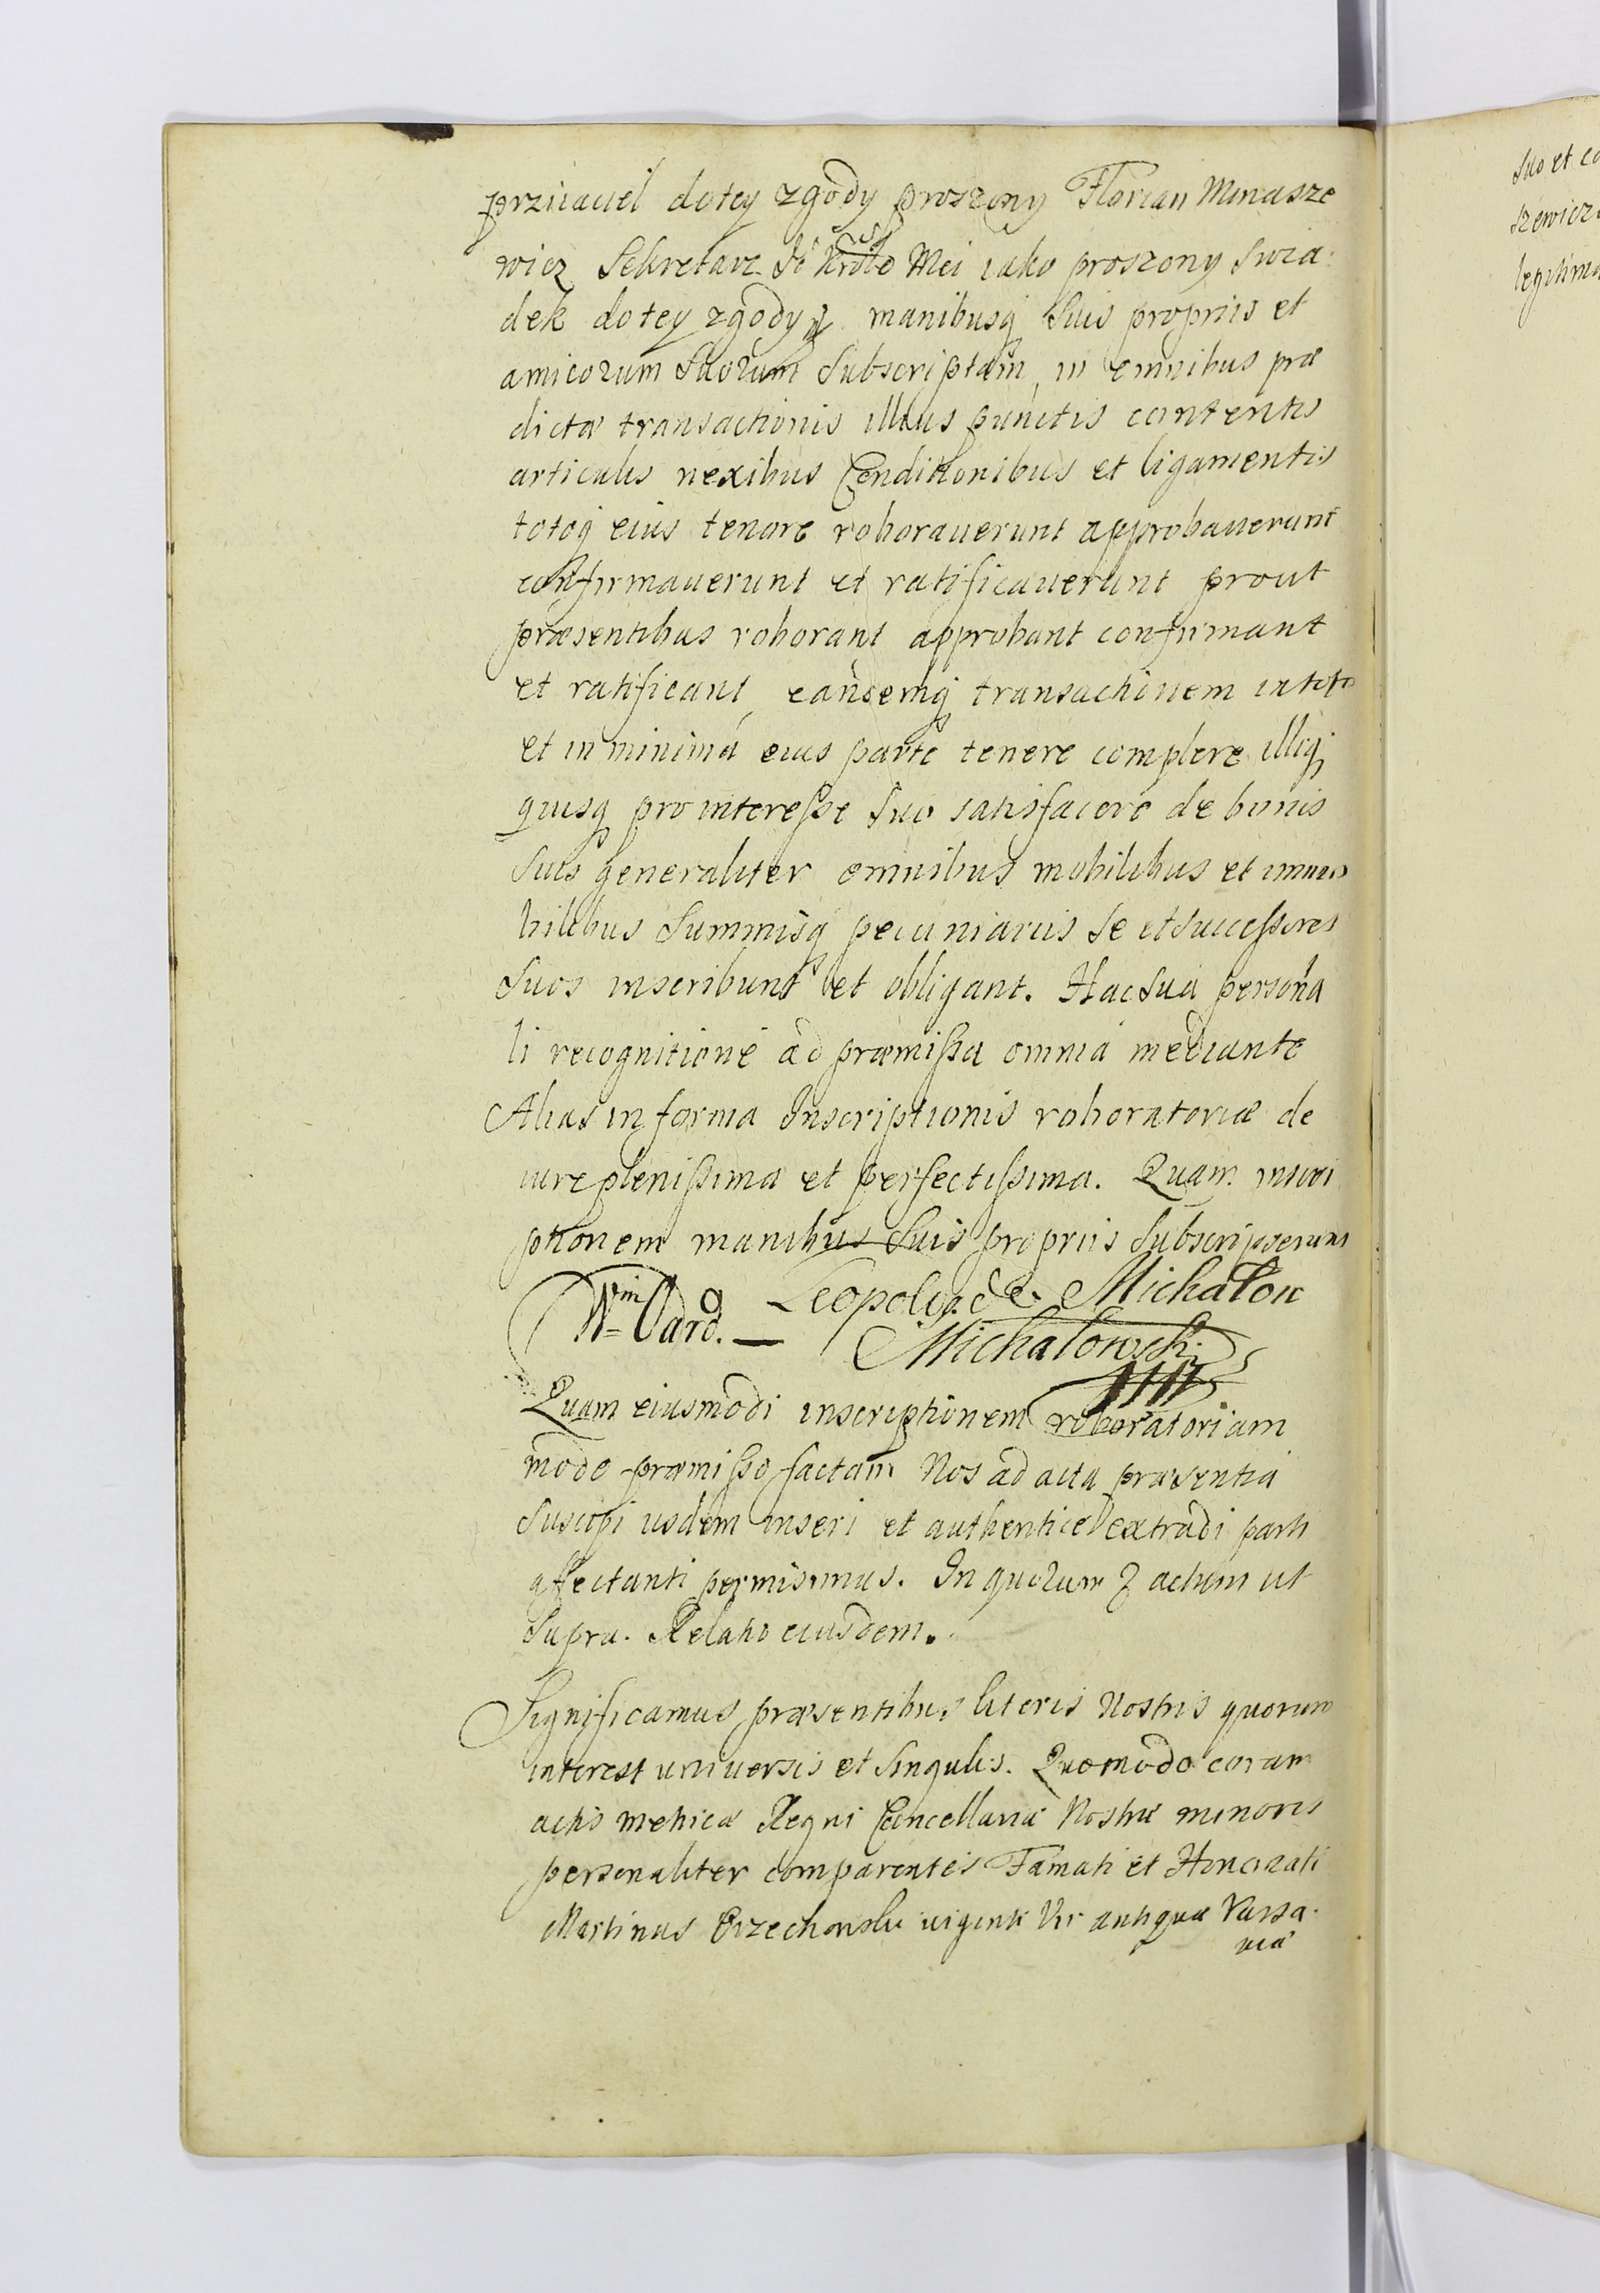 przÿiaciel dotey zgody proszony Florian Minasze
wicz Sekretarz Jo Krolo Mci iako proszony Swia
dek dotey zgody manibusq Suis propriis et
amicorum Suorum Subscriptam, in omnibus præ
dictæ transactionis illius punctis contentis
articulis nexibus Conditionibus et ligamentis
totoq eius tenore roborauerunt approbauerunt
confirmauerunt et ratificauerunt prout
præsentibus roborant approbant confirmant
et ratificant, eandemq transactionem intoto
et in minimá eius parte tenere complere illiq
quisq pro interesse Suo satisfacere de bonis
Suis generaliter omnibus mobilibus et immo
bilibus Summisq pecuniariis Se et Successores
Suos inscribunt et obligant. Hac Sua persona
li recognitione ad præmissa omnia mediante
Alias in forma Inscriptionis roboratoriæ de
iure plenissima et perfectissima. Quam inscri
ptionem manibus Suis propriis Subscripserunt
Leopold de Michalow
Michalowski
Quam eiusmodi inscriptionem roboratoriam
modo præmisso factam Nos ad acta præsentia
Suscipi iisdem inseri et authentice extradi parti
affectanti permisimus. In quorum actum ut
Supra. Relatio eiusdem.
Significamus præsentibus literis Nostris quorum
interest universis et Singulis. Quomodo coram
actis Metricæ Regni Cancellariæ Nostræ minoris
personaliter comparentes Famati et Honorati
Martinus Orzechowski viginti Vir antiquæ Varsa
viæ
Suo et co
szewicz
legitima